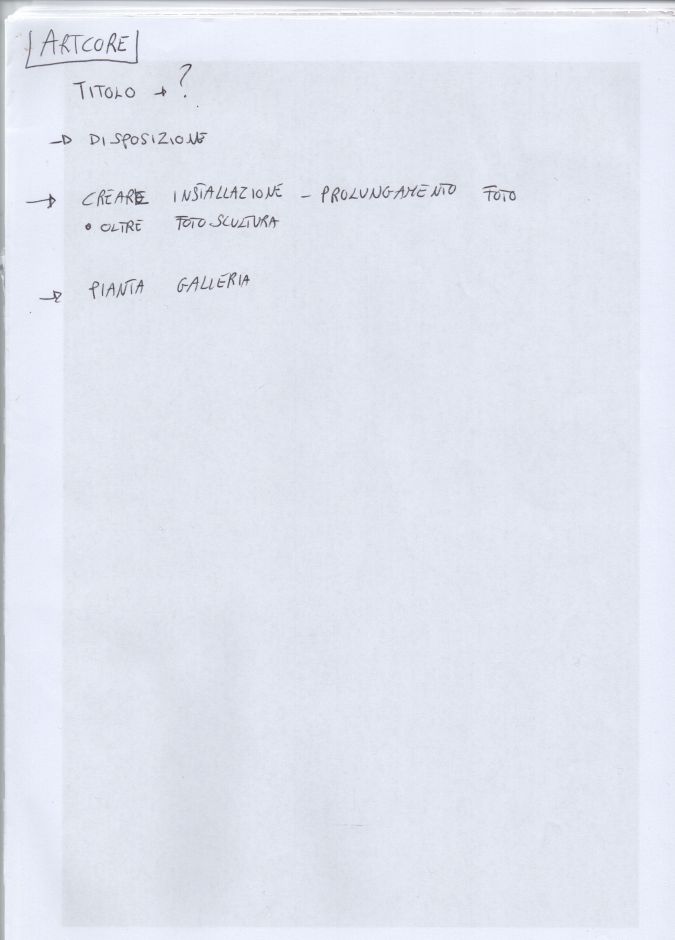 ARTCORE
TITOLO → ?
→ DISPOSIZIONE
→ CREARE INSTALLAZIONE - PROLUNGAMENTO FOTO
• OLTRE FOTO-SCULTURA
→ PIANTA GALLERIA